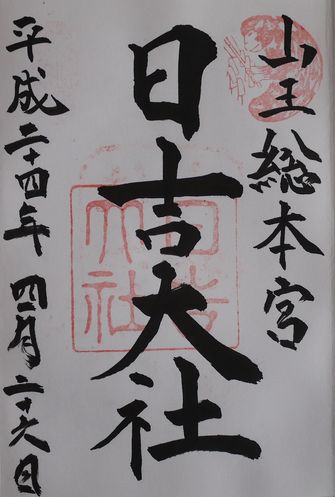 山王総本宮
日吉大社
日吉大社
平成二十四年 四月二十六日